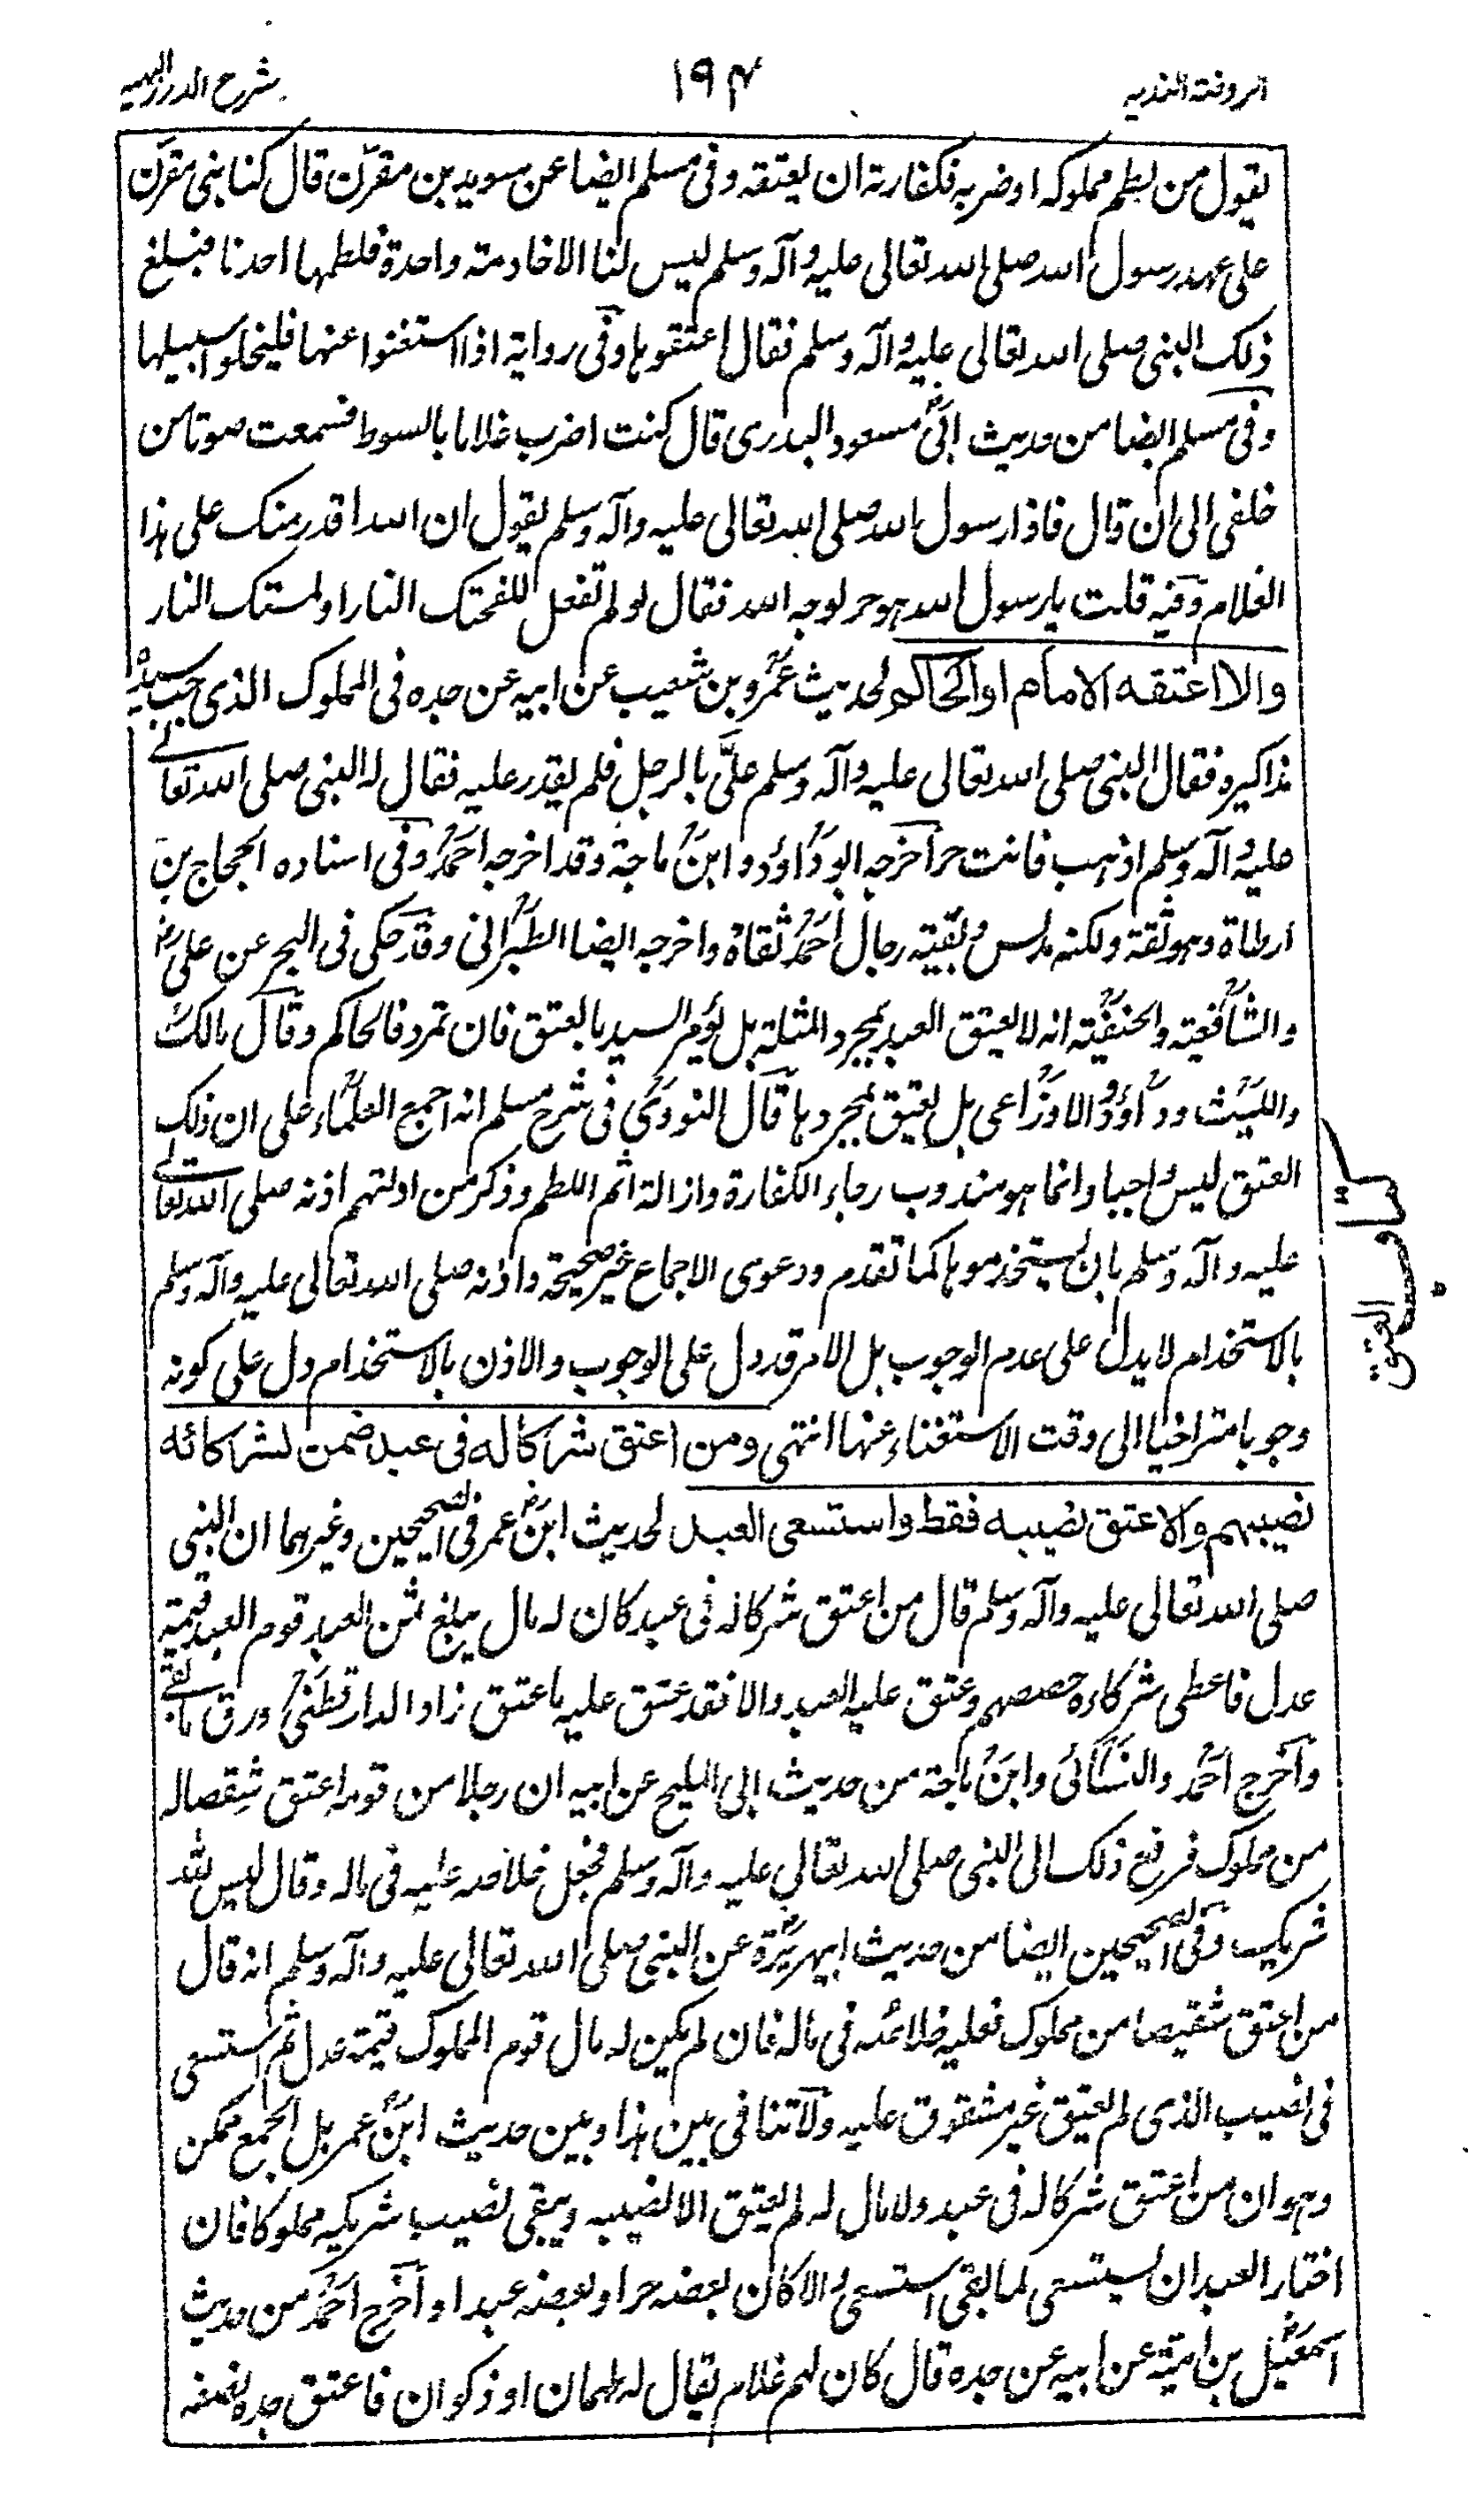 الروضة الندية
۱۹۴
شرح الدرر البهية
يقول من لطم مملوكه او ضربه فكفارته ان يعتقه وفى مسلم ايضا عن سويد بن مقرّن قال كنا بنى مقرّن
على عهد رسول الله صلى الله تعالى عليه وآله وسلم ليس لنا الا خادمة واحدة فلطمها احدنا فبلغ
ذلك النبى صلى الله تعالى عليه وآله وسلم فقال اعتقوها وفى رواية اذا استغنوا عنها فليخلوا سبيلها
وفى مسلم ايضا من حديث ابى مسعود البدرى قال كنت اضرب غلاما بالسوط فسمعت صوتا من
خلفى الى ان قال فاذا رسول الله صلى الله تعالى عليه وآله وسلم يقول ان الله اقدر منك على هذا
الغلام وفيه قلت يا رسول الله هو حر لوجه الله فقال لو لم تفعل للفحتك النار او لمستك النار
والا اعتقه الامام او الحاكم لحديث عمرو بن شعيب عن ابيه عن جده فى المملوك الذى جب سيده
مذاكيره فقال النبى صلى الله تعالى عليه وآله وسلم علىّ بالرجل فلم يقدر عليه فقال له النبى صلى الله تعالى
عليه وآله وسلم اذهب فانت حر اخرجه ابو داؤد وابن ماجة وقد اخرجه احمد وفى اسناده الحجاج بن
ارطاة وهو ثقة ولكنه مدلس وبقية رجال احمد ثقاة واخرجه ايضا الطبرانى وقد حكى فى البحر عن على رض
والشافعية والحنفية انه لا يعتق العبد بمجرد المثلة بل يؤمر السيد بالعتق فان تمرد فالحاكم وقال مالك
والليث وداؤد والاوزاعى بل يعتق بمجردها قال النووى فى شرح مسلم انه اجمع العلماء على ان ذلك
العتق ليس واجبا وانما هو مندوب رجاء الكفارة وازالة اثم اللطم وذكر من ادلتهم اذنه صلى الله تعالى
عليه وآله وسلم بان يستخدموها كما تقدم ودعوى الاجماع غير صحيحة واذنه صلى الله تعالى عليه وآله وسلم
بالاستخدام لا يدل على عدم الوجوب بل الامر قد دل على الوجوب والاذن بالاستخدام دل على كونه
وجوبا متراخيا الى وقت الاستغناء عنها انتهى ومن اعتق شركا له فى عبد ضمن لشركائه
نصيبهم والا عتق نصيبه فقط واستسعى العبد لحديث ابن عمر فى الصحيحين وغيرهما ان النبى
صلى الله تعالى عليه وآله وسلم قال من اعتق شركا له فى عبد كان له مال يبلغ ثمن العبد قوم العبد قيمة
عدل فاعطى شركاءه حصصهم وعتق عليه العبد والا فقد عتق عليه ما عتق زاد الدارقطنى ورق ما بقى
واخرج احمد والنسائى وابن ماجة من حديث ابى المليح عن ابيه ان رجلا من قومه اعتق شقصا له
من مملوك فرفع ذلك الى النبى صلى الله تعالى عليه وآله وسلم فجعل خلاصه عليه فى ماله وقال ليس لله
شريك وفى الصحيحين ايضا من حديث ابيهريرة عن النبى صلى الله تعالى عليه وآله وسلم انه قال
من اعتق شقيصا من مملوك فعليه خلاصه فى ماله فان لم يكن له مال قوم المملوك قيمة عدل ثم استسعى
فى نصيب الذى لم يعتق غير مشقوق عليه ولا تنافى بين هذا وبين حديث ابن عمر بل الجمع ممكن
وهو ان من اعتق شركا له فى عبد ولا مال له لم يعتق الا نصيبه ويبقى نصيب شريكه مملوكا فان
اختار العبد ان يستسعى لما بقى استسعى والا كان بعضه حرا وبعضه عبدا واخرج احمد من حديث
اسمعيل بن امية عن ابيه عن جده قال كان لهم غلام يقال له طهمان او ذكوان فاعتق جده نصفه
العتق